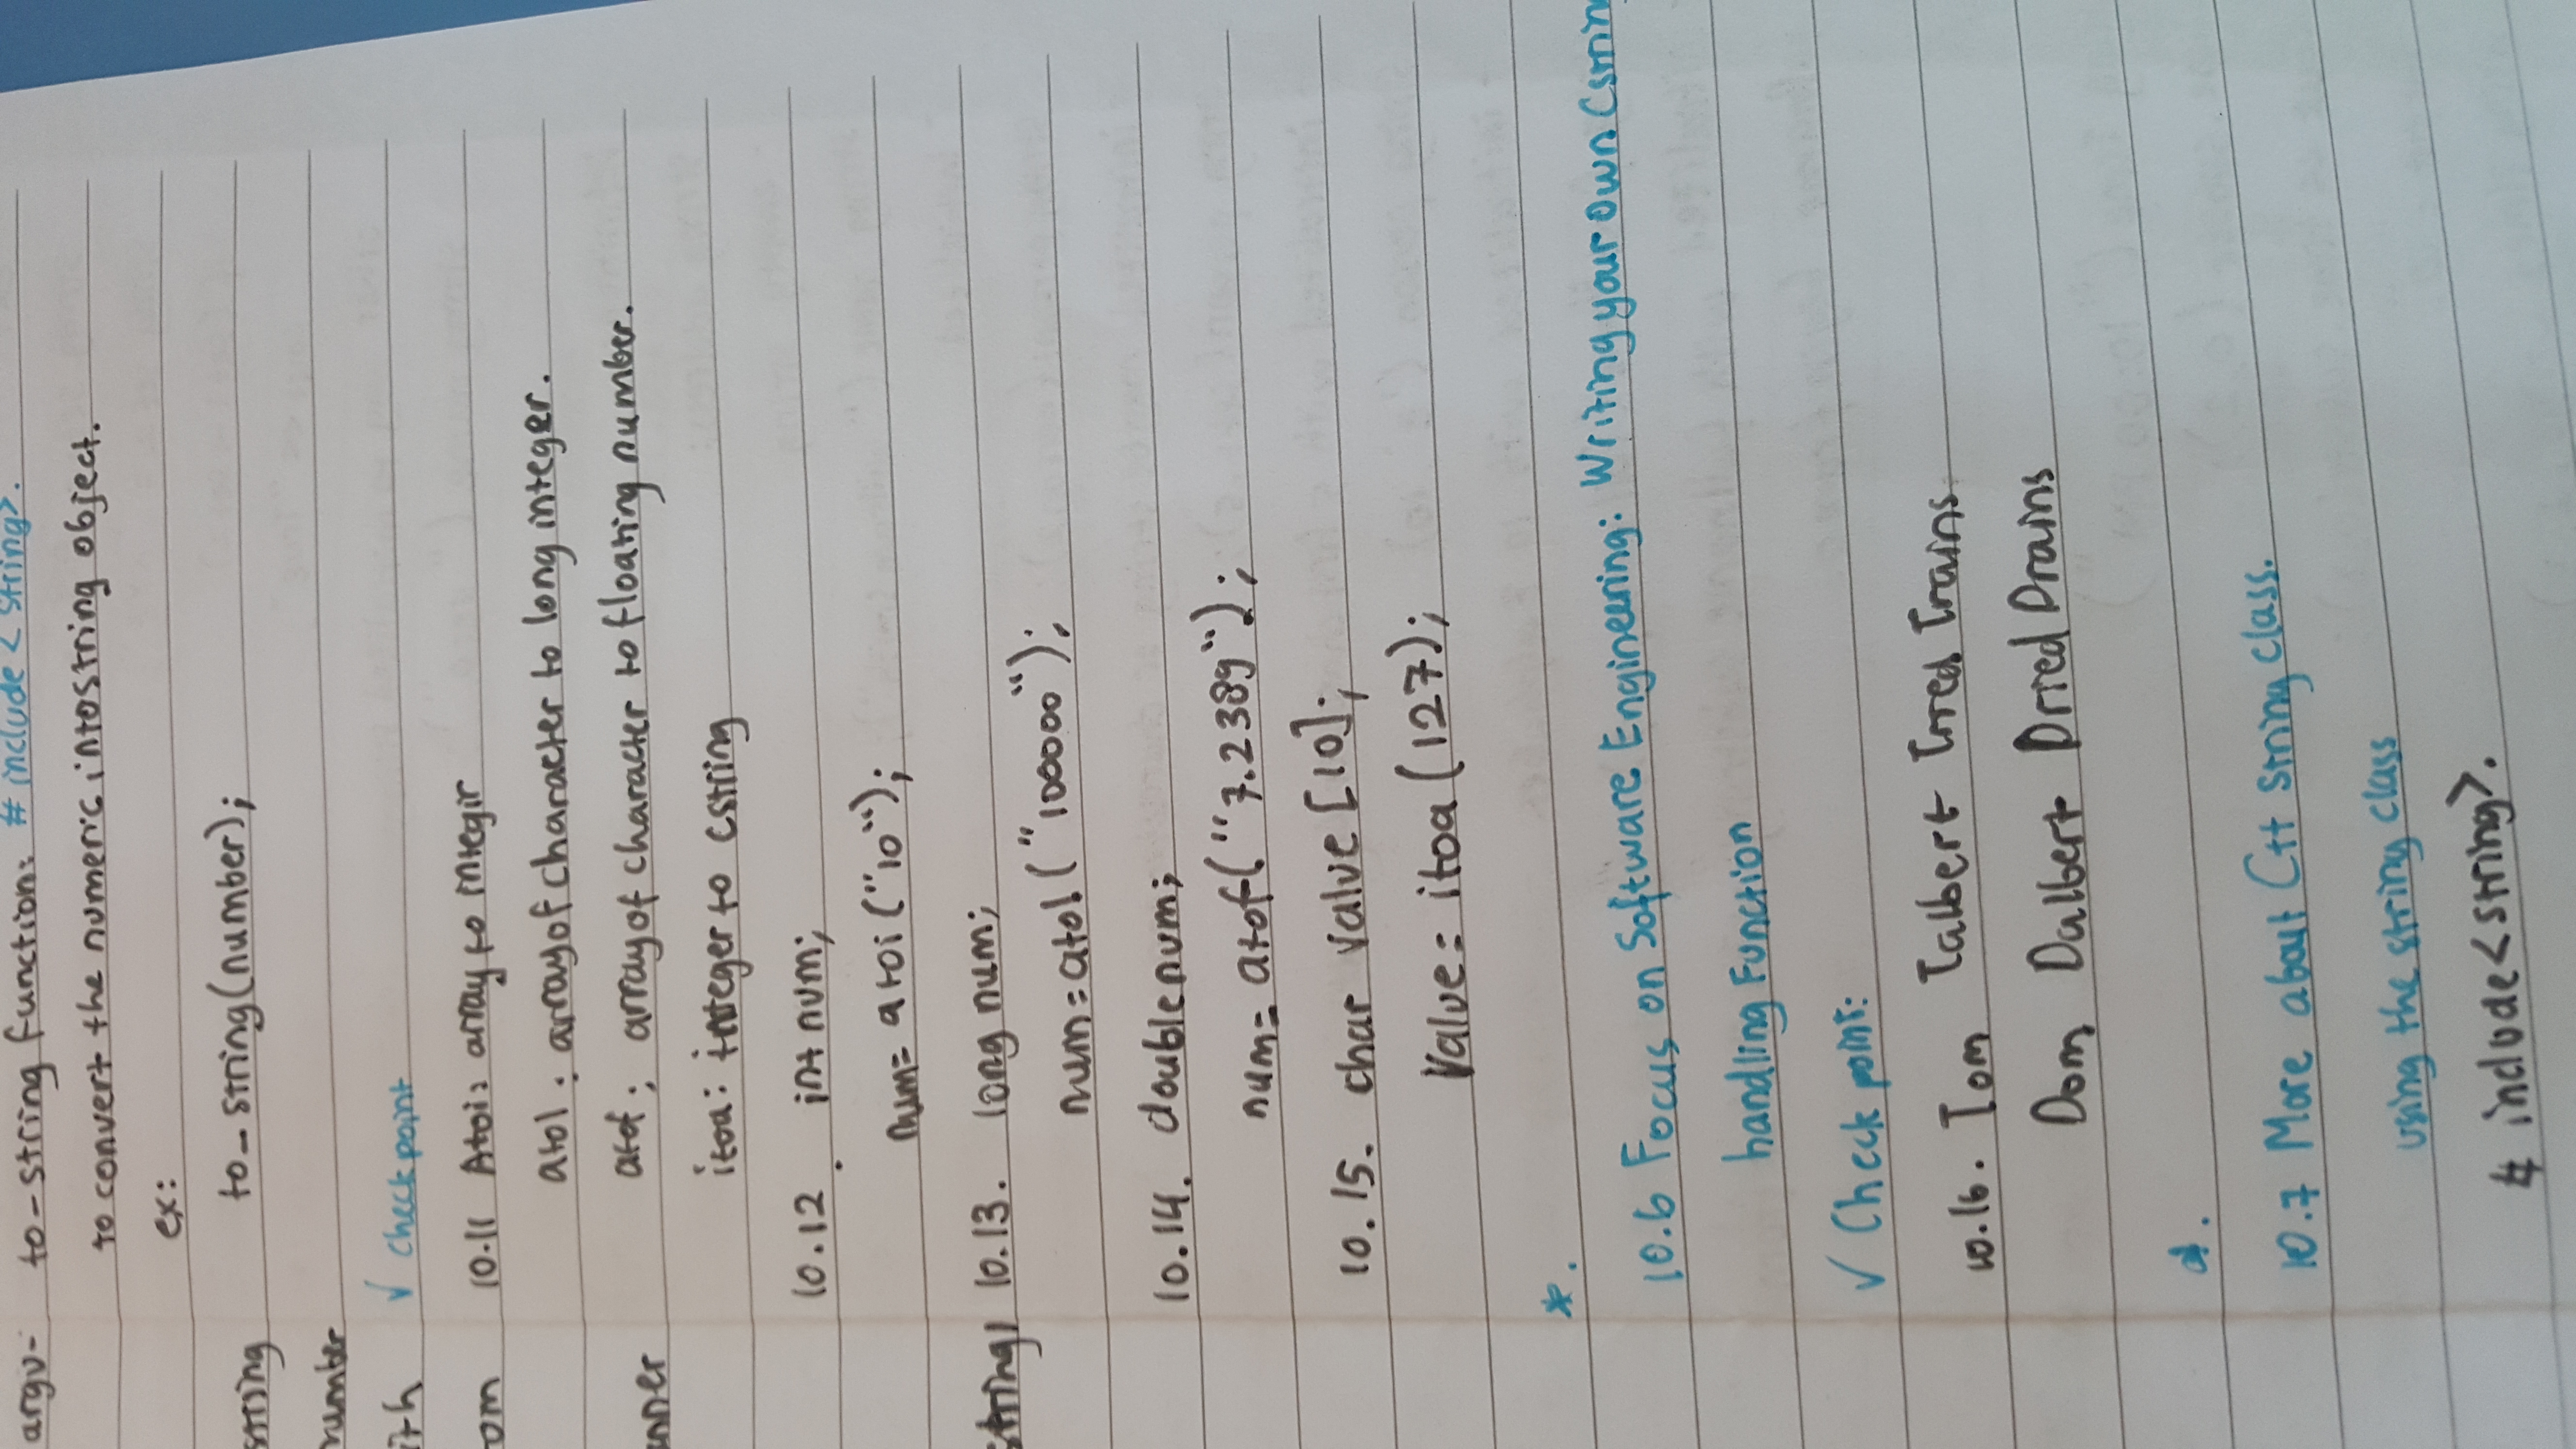 argu-
string
number
ith
om
nner
string,
to-string function: #include <string>.
to convert the numeric into string object.
ex:
to_string(number);
√ checkpoint
10.11 Atoi: array to integir
atol: array of character to long integer.
atof: array of character to floating number.
itoa: integer to cstring
10.12. int num;
num= atoi("10");
10.13. long num;
num=atol("100000");
10.14. double num;
num= atof("7.2389");
10.15. char value[10];
Value= itoa(127);
*.
10.6 Focus on Software Engineering: Writing your own Cstrin
handling Function
√ Check point:
10.16. Tom Talbert Tried Trains
Dom Dalbert Dried Drains
10.7 More about C++ string class.
using the string class
# include<string>.